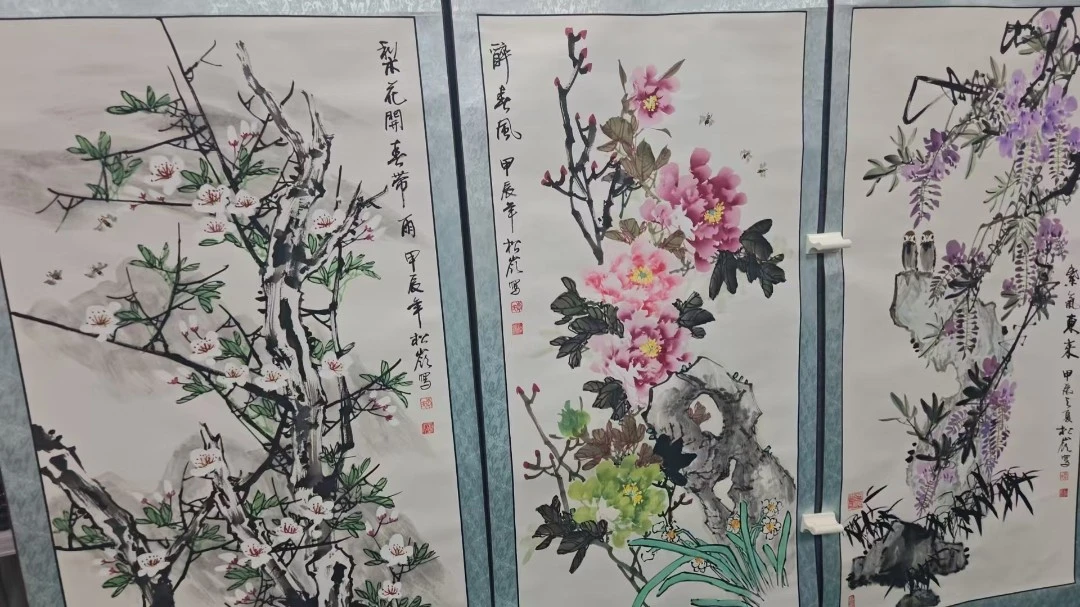 梨花開春帶雨 甲辰年 松嶺寫
醉春風 甲辰年 松嶺寫
紫氣東來 甲辰之夏 松嶺寫